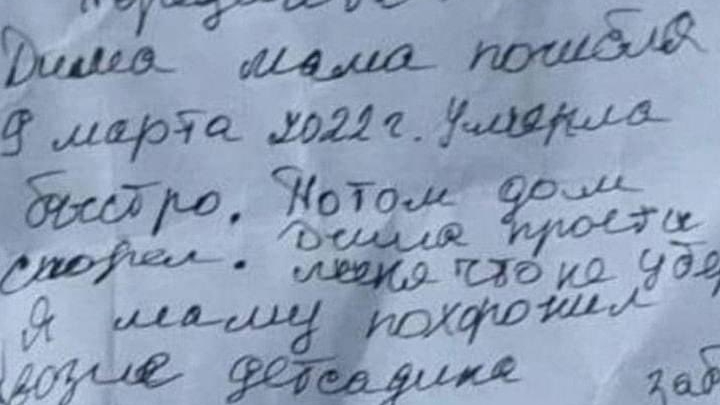 Дима мама погибла
9 марта 2022г. Умерла
быстро. Потом дом
сгорел. Дима прости
меня что не убер
Я маму похоронил
возле детсадика заб